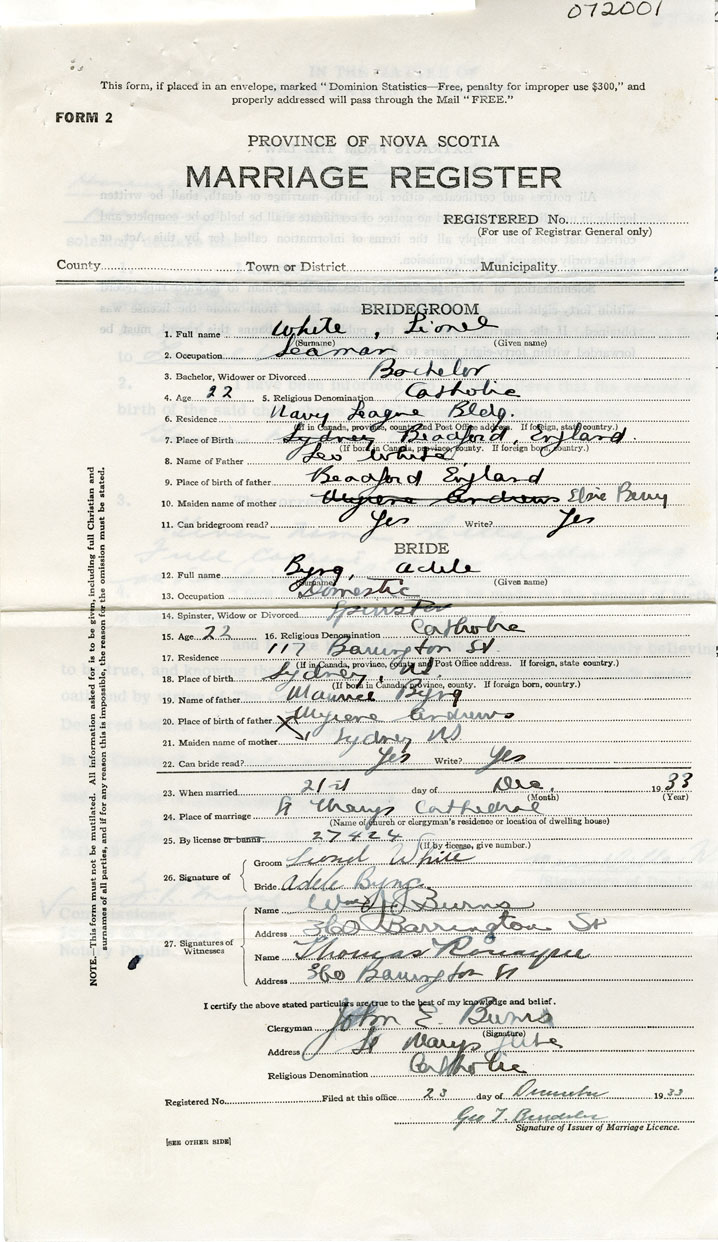 072001
This form, if placed in an envelope, marked "Dominion Statistics—Free, penalty for improper use $300," and
properly addressed will pass through the Mail "FREE."
FORM 2
PROVINCE OF NOVA SCOTIA
MARRIAGE REGISTER
REGISTERED No.
(For use of Registrar General only)
County Town or District Municipality
BRIDEGROOM
1. Full name White, Lionel
(Surname) (Given name)
2. Occupation Seaman
3. Bachelor, Widower or Divorced Bachelor
4. Age 22 5. Religious Denomination Catholic
6. Residence Navy League Bldg.
(If in Canada, province, county and Post Office address. If foreign, state country.)
7. Place of Birth Sydney Beadford, England.
(If born in Canada, province, county. If foreign born, country.)
8. Name of Father Leo White
9. Place of birth of father Beadford England
10. Maiden name of mother Myrene Andrews Elsie Berry
11. Can bridegroom read? Yes Write? Yes
BRIDE
12. Full name Byng, Adele
(Surname) (Given name)
13. Occupation Domestic
14. Spinster, Widow or Divorced Spinster
15. Age 22 16. Religious Denomination Catholic
17. Residence 117 Barrington St.
(If in Canada, province, county and Post Office address. If foreign, state country.)
18. Place of birth Sydney, NS.
(If born in Canada, province, county. If foreign born, country.)
19. Name of father Maurice Byng
20. Place of birth of father Myrene Andrews
21. Maiden name of mother Sydney NS
22. Can bride read? Yes Write? Yes
23. When married 21st day of Dec, 1933
(Month) (Year)
24. Place of marriage St Marys Cathedral
(Name of church or clergyman's residence or location of dwelling house)
25. By license or banns 27424
(If by license, give number.)
26. Signature of
Groom Lionel White
Bride Adele Byng
27. Signatures of Witnesses
Name Burns
Address 360 Barrington St
Name Thomas
Address 360 Barrington St
I certify the above stated particulars are true to the best of my knowledge and belief.
Clergyman John E. Burns
(Signature)
Address St Marys Glebe
Religious Denomination Catholic
Registered No. Filed at this office 23 day of December 1933
Geo T.
Signature of Issuer of Marriage Licence.
[SEE OTHER SIDE]
NOTE.—This form must not be mutilated. All information asked for is to be given, including full Christian and
surnames of all parties, and if for any reason this is impossible, the reason for the omission must be stated.